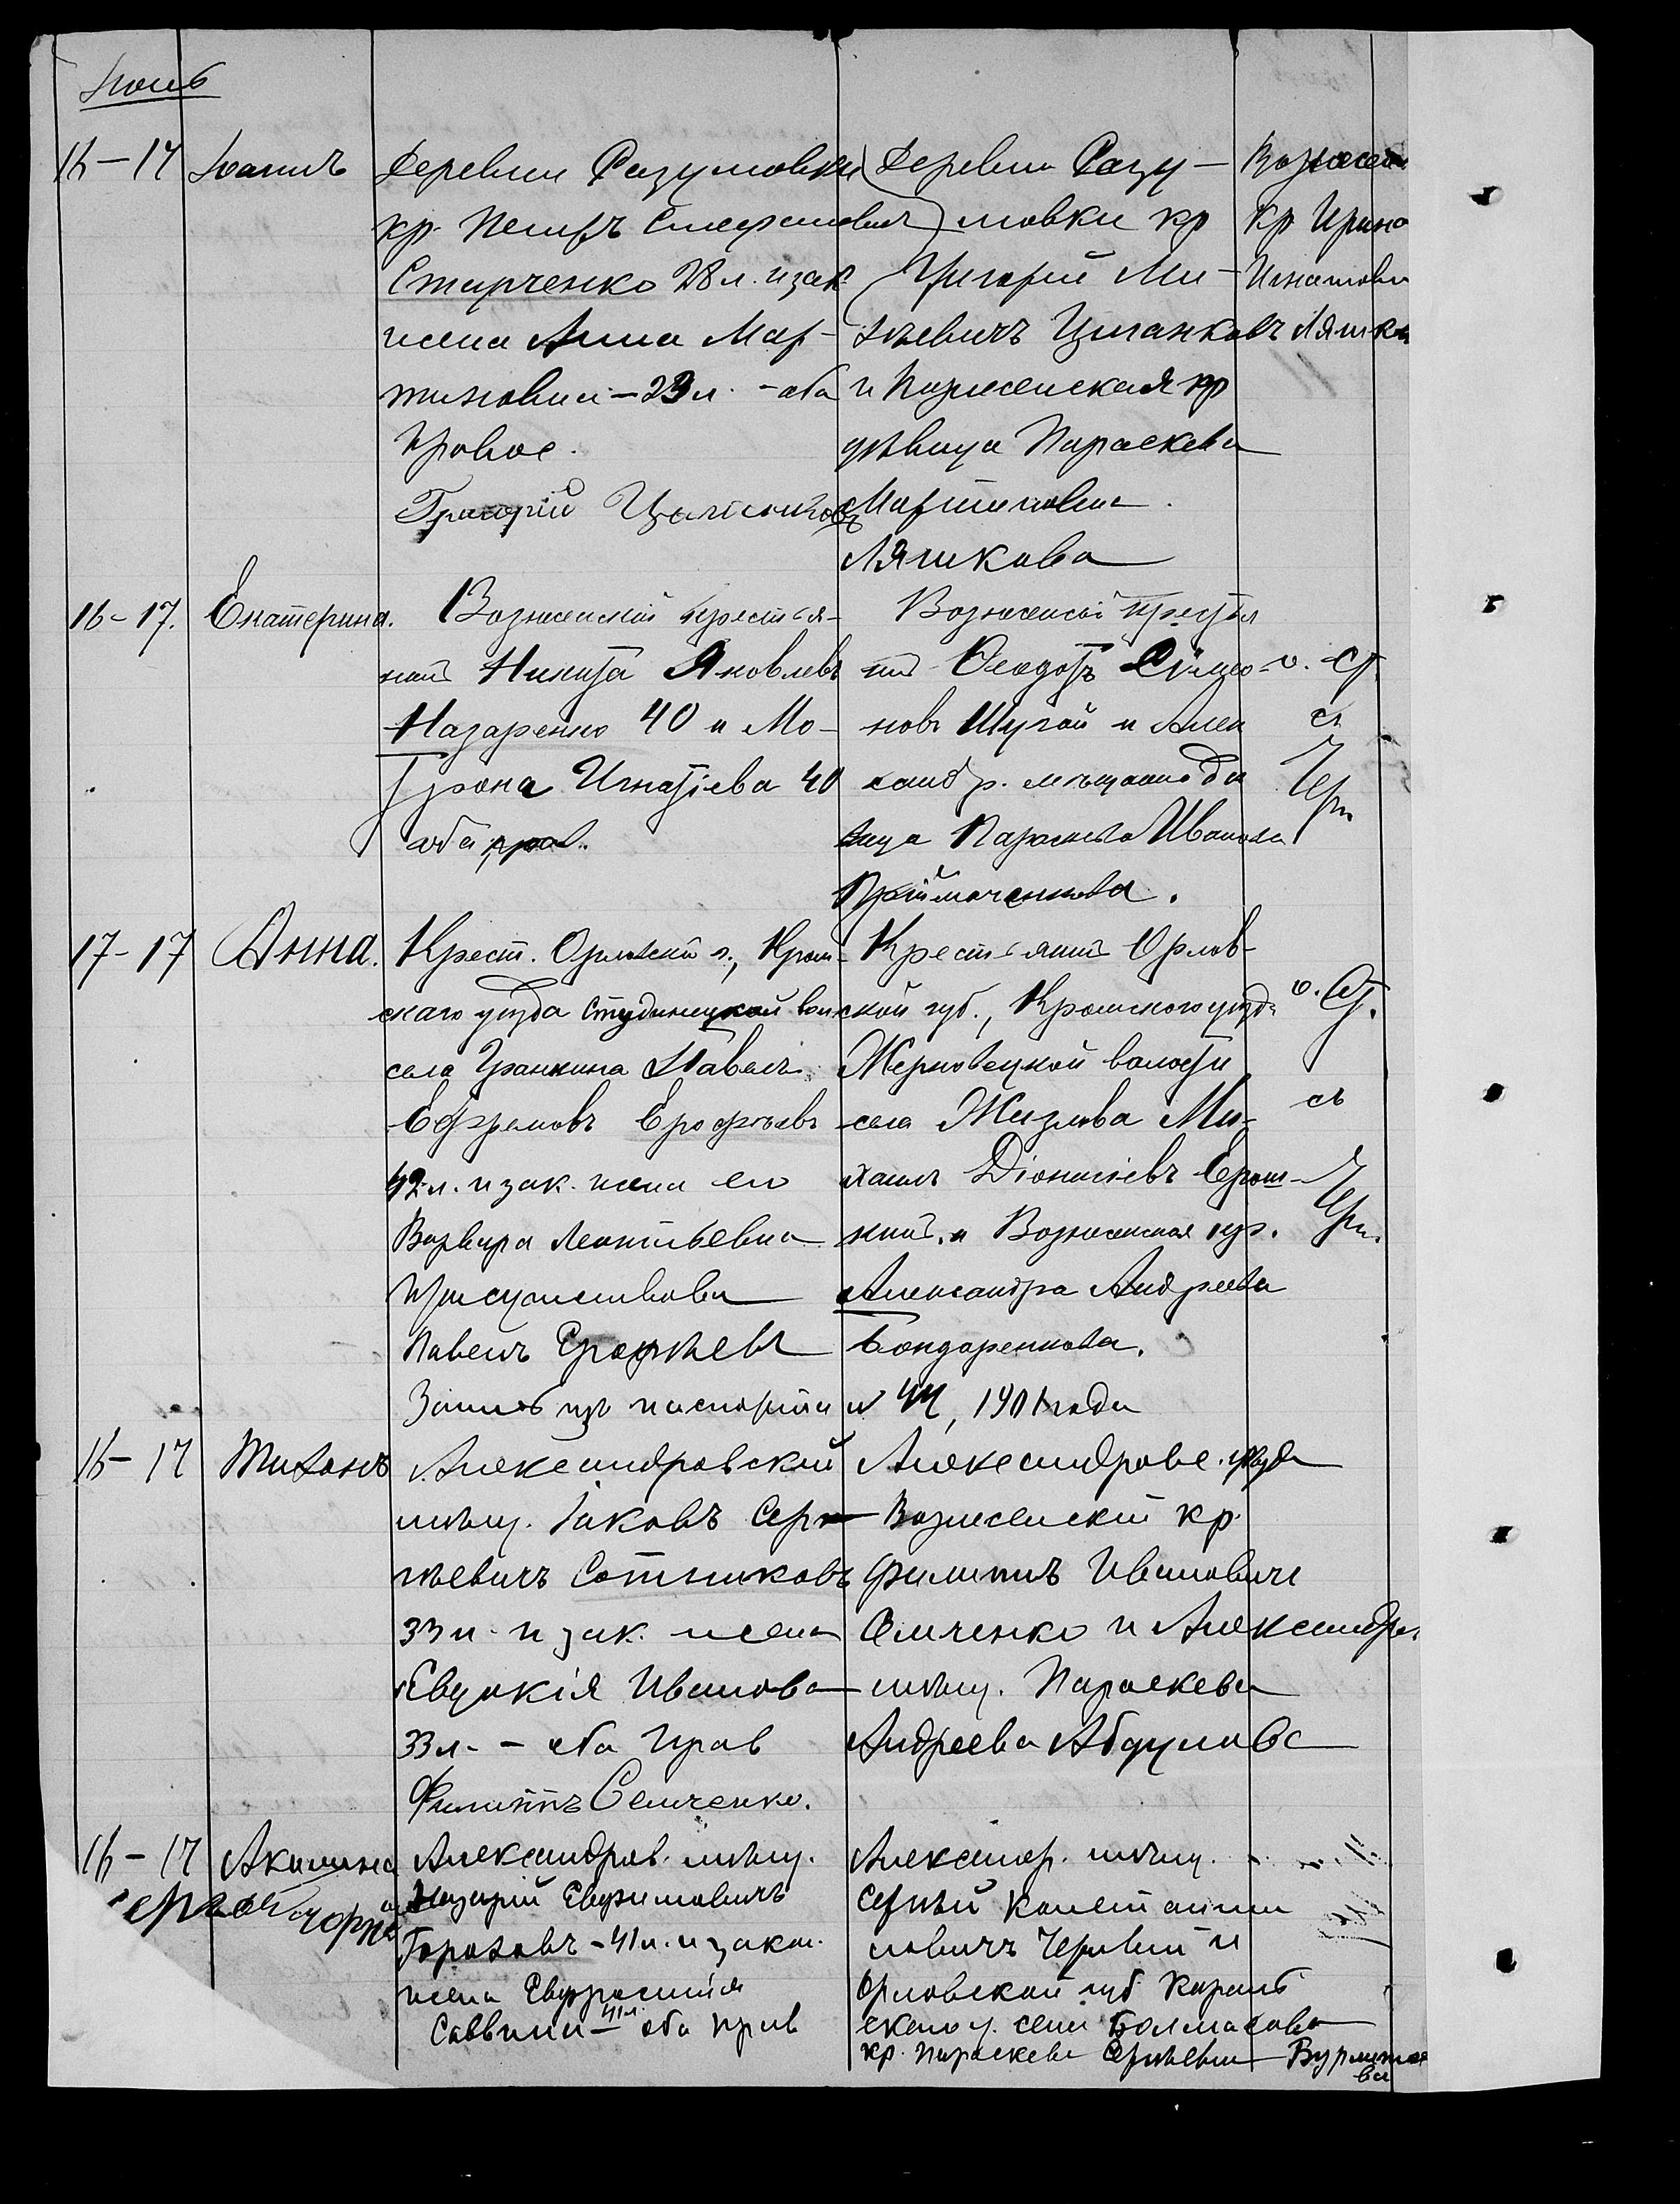 Іюнь
16-17 Іоаннъ
Деревни Разумовки
кр. Петръ Стефановичъ
Стирченко 28 л. и зак.
жена Анна Мар-
тиновна - 23 л. - оба
правос.
Григорій Цыганковъ
Деревни Разу-
мовки кр
Григорій Ми-
хѣевичъ Цыганковъ
и Вознесенская кр
дѣвица Параскева
Мартиновна
Ляшкова
Вознесен
кр Ирина
Игнатова
Ляшко
16-17. Екатерина.
Вознесенскій крестья-
нинъ Никита Яковлевъ
Назаренко 40 и Мо-
трона Игнатіева 40
оба прав.
Вознесенскій крестья
нинъ Ѳеодотъ Симео-
новъ Шугай и Алек
сандр. мѣщанка дѣ
вица Параскева Иванова
Приймаченкова.
о. Ст.
съ
17-17 Анна.
Крест. Орловской г., Кром-
скаго уѣзда Студинецкой вол
села Гранкина Павелъ
Ефремовъ Ерофѣевъ
42 л. и зак. жена его
Варвара Леонтьевна
Православные
Павелъ Ерофѣевъ
Крестьянинъ Орлов-
ской губ., Кромского уѣзда
Жерновецкой волости
села Жизлова Ми-
хаилъ Діонисіевъ Ерош-
кинъ и Вознесенская кр.
Александра Андреева
Бондаренкова.
о. Ст.
съ
Запись изъ паспорта 1901 года
16-17 Тихонъ
Александровскій
мѣщ. Іаковъ Серг
ѣевичъ Сотниковъ
33 л. и зак. жена
Евдокія Иванова
33 л. - оба прав
Филиппъ Семченко.
Александров. уѣзда
Вознесенскій кр.
Филиппъ Ивановичъ
Семченко и Александр.
мѣщ. Параскева
Андреева Абдулова
16-17 Акилина
Александров. мѣщ.
Назарій Евфимовичъ
Гороховъ - 41 л. и закон.
жена Евфросинія
Саввина - 41 л. оба прав
Александр. мѣщ.
Сергѣй Константи
новичъ Червин и
Орловской губ.
скаго у. села Болмасова
кр. Параскева Сергѣевна